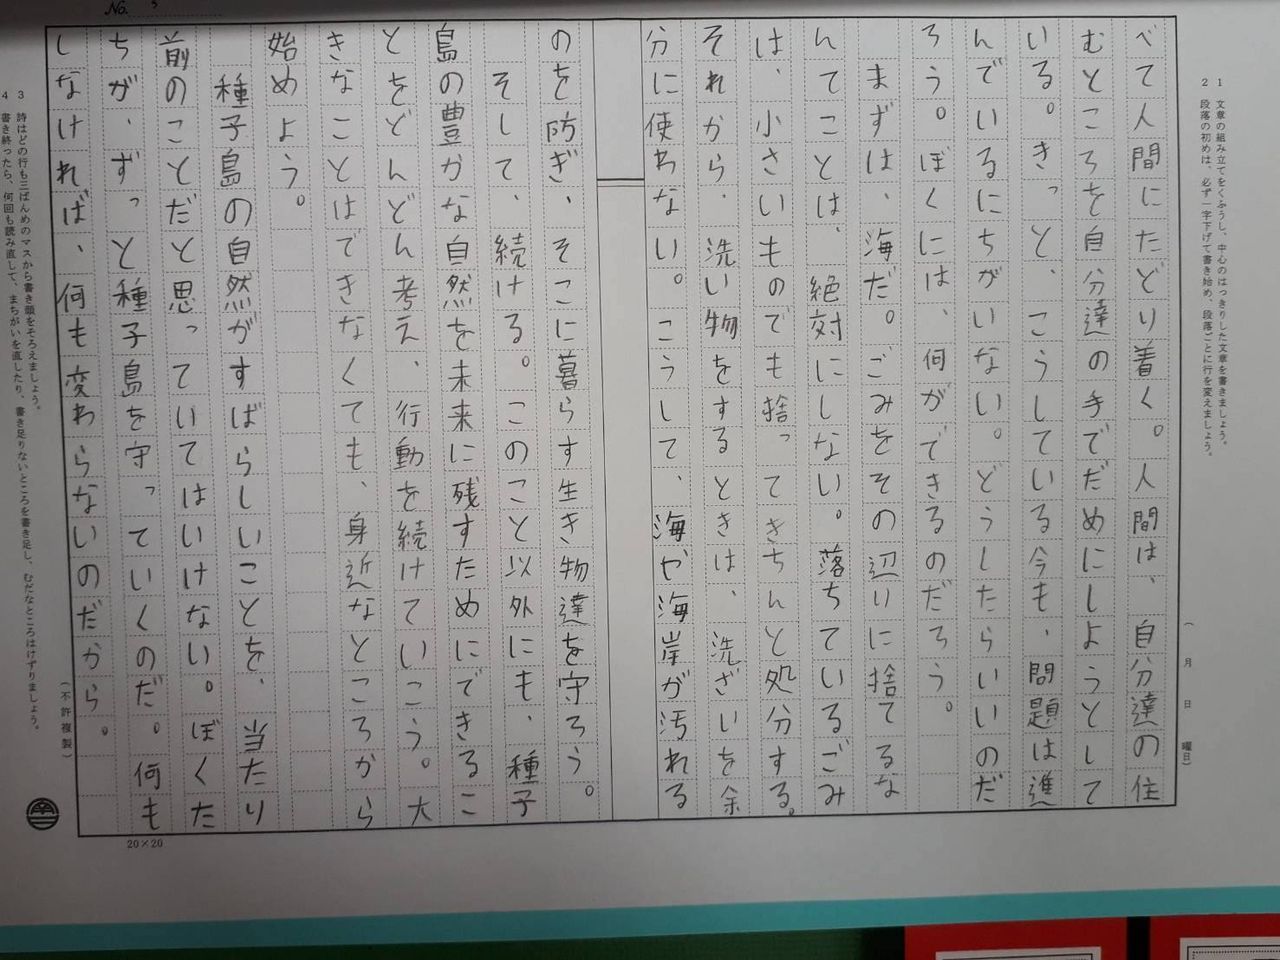 1 文章の組み立てをくふうし、中心のはっきりした文章を書きましょう。
2 段落の初めは、必ず一字下げて書き始め、段落ごとに行を変えましょう。
(月 日 曜日)
べて人間にたどり着く。人間は、自分達の住
むところを自分達の手でだめにしようとして
いる。きっと、こうしている今も、問題は進
んでいるにちがいない。どうしたらいいのだ
ろう。ぼくには、何ができるのだろう。
まずは、海だ。ごみをその辺りに捨てるな
んてことは、絶対にしない。落ちているごみ
は、小さいものでも捨ってきちんと処分する。
それから、洗い物をするときは、洗ざいを余
分に使わない。こうして、海や海岸が汚れる
のを防ぎ、そこに暮らす生き物達を守ろう。
そして、続ける。このこと以外にも、種子
島の豊かな自然を未来に残すためにできるこ
とをどんどん考え、行動を続けていこう。大
きなことはできなくても、身近なところから
始めよう。
種子島の自然がすばらしいことを、当たり
前のことだと思っていてはいけない。ぼくた
ちが、ずっと種子島を守っていくのだ。何も
しなければ、何も変わらないのだから。
3 詩はどの行も三ばんめのマスから書き頭をそろえましょう。
4 書き終ったら、何回も読み直して、まちがいを直したり、書き足りないところを書き足し、むだなところはけずりましょう。
(不許複製)
20×20
No. 3